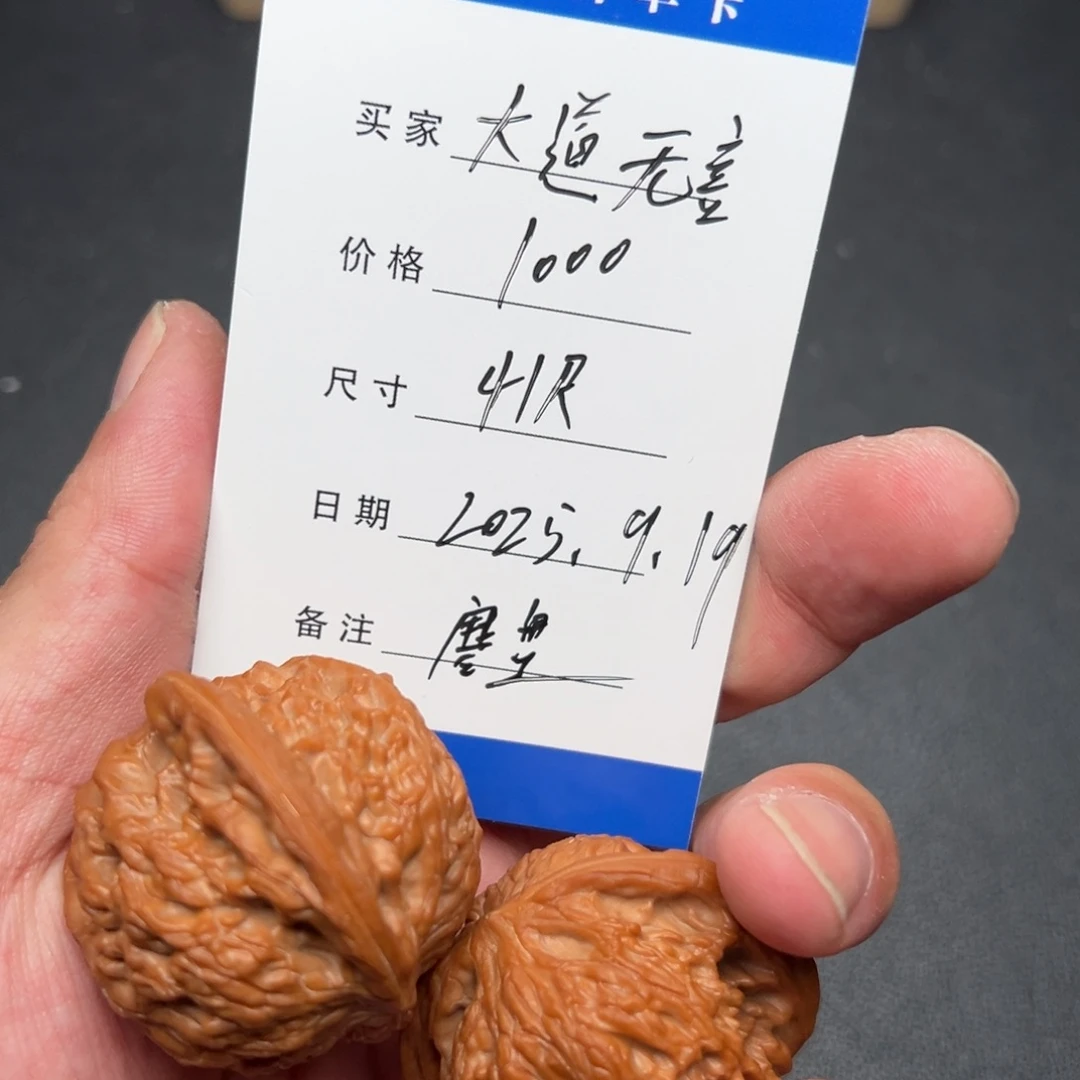 买家 大道无言
价格 1000
尺寸 41尺
日期 2025.9.19
备注 磨盘